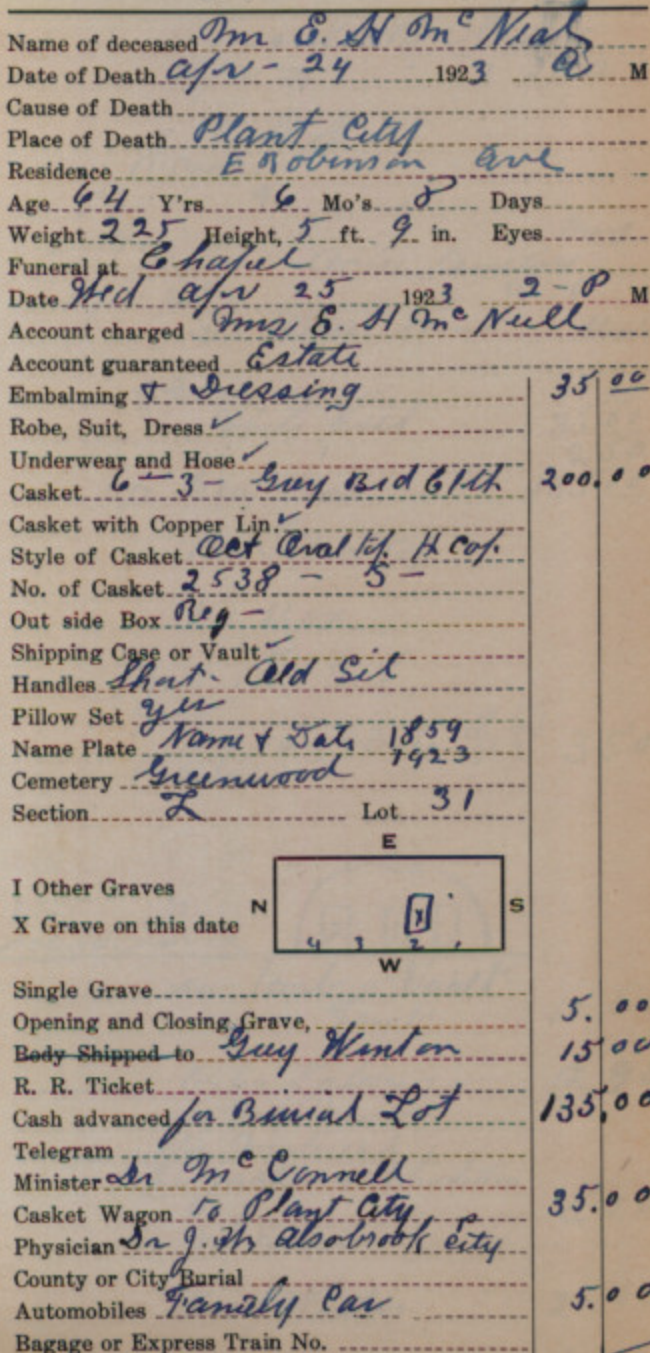 Name of deceased Mr E. H Mc Neal
Date of Death Apr - 24 1923 a M
Cause of Death
Place of Death Plant City
Residence E Robinson ave
Age 64 Y'rs 6 Mo's 8 Days
Weight 225 Height, 5 ft. 9 in. Eyes
Funeral at Chapel
Date Wed apr 25 1923 2 - P M
Account charged Mrs E. H Mc Neill
Account guaranteed Estate
Embalming & Dressing 35 00
Robe, Suit, Dress ✓
Underwear and Hose ✓
Casket 6 - 3 - Grey Brd Clth 200.00
Casket with Copper Lin. ✓
Style of Casket Oct Oval H cop.
No. of Casket 2538 - 5 -
Out side Box Reg -
Shipping Case or Vault ✓
Handles Short - Old Sil
Pillow Set yes
Name Plate Name & Date 1859
1923
Cemetery Greenwood
Section L Lot 31
E
I Other Graves
X Grave on this date N X S
4 3 2 1
W
Single Grave
Opening and Closing Grave, 5.00
Body Shipped to Guy Winton 15 00
R. R. Ticket
Cash advanced for Burial Lot 135.00
Telegram
Minister Dr Mc Connell
Casket Wagon to Plant City 35.00
Physician Dr J. W Alsobrook P City
County or City Burial
Automobiles Family Car 5.00
Bagage or Express Train No.